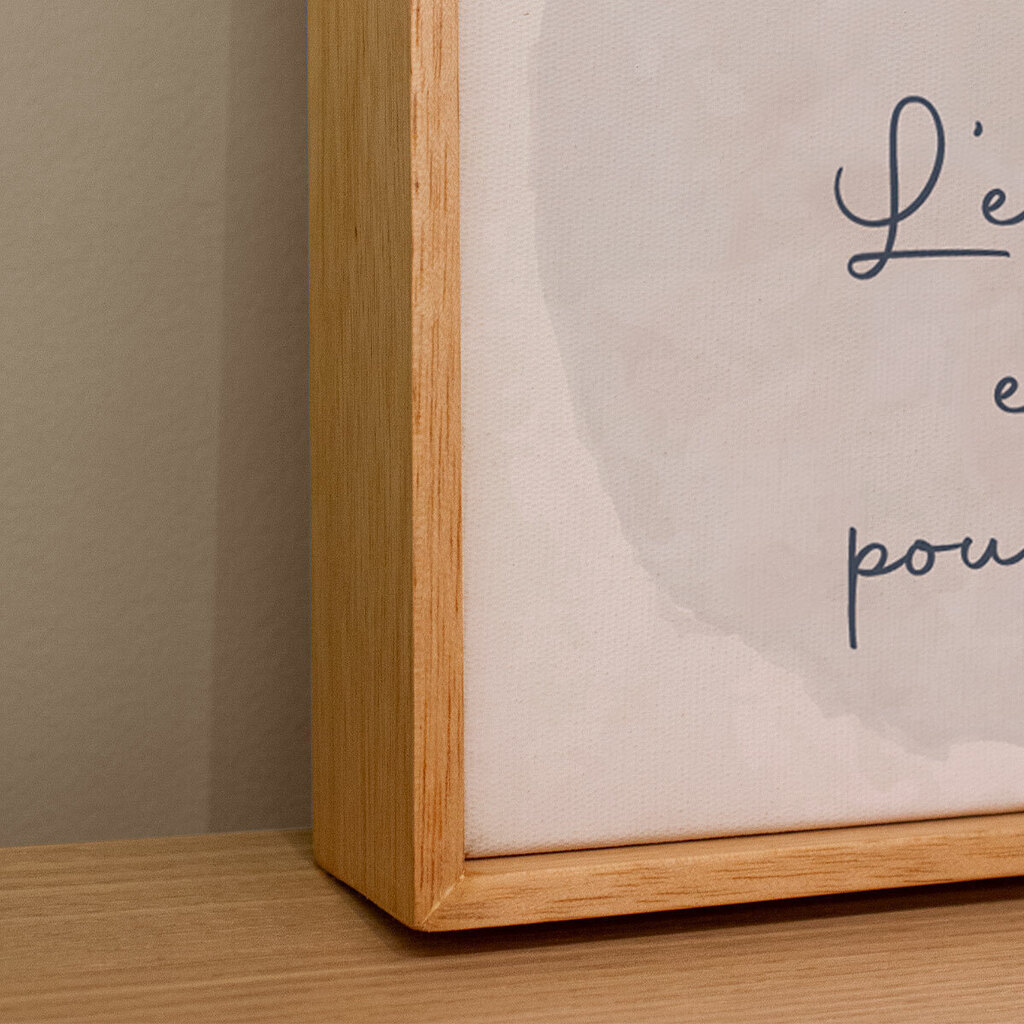 L'e
e
pou